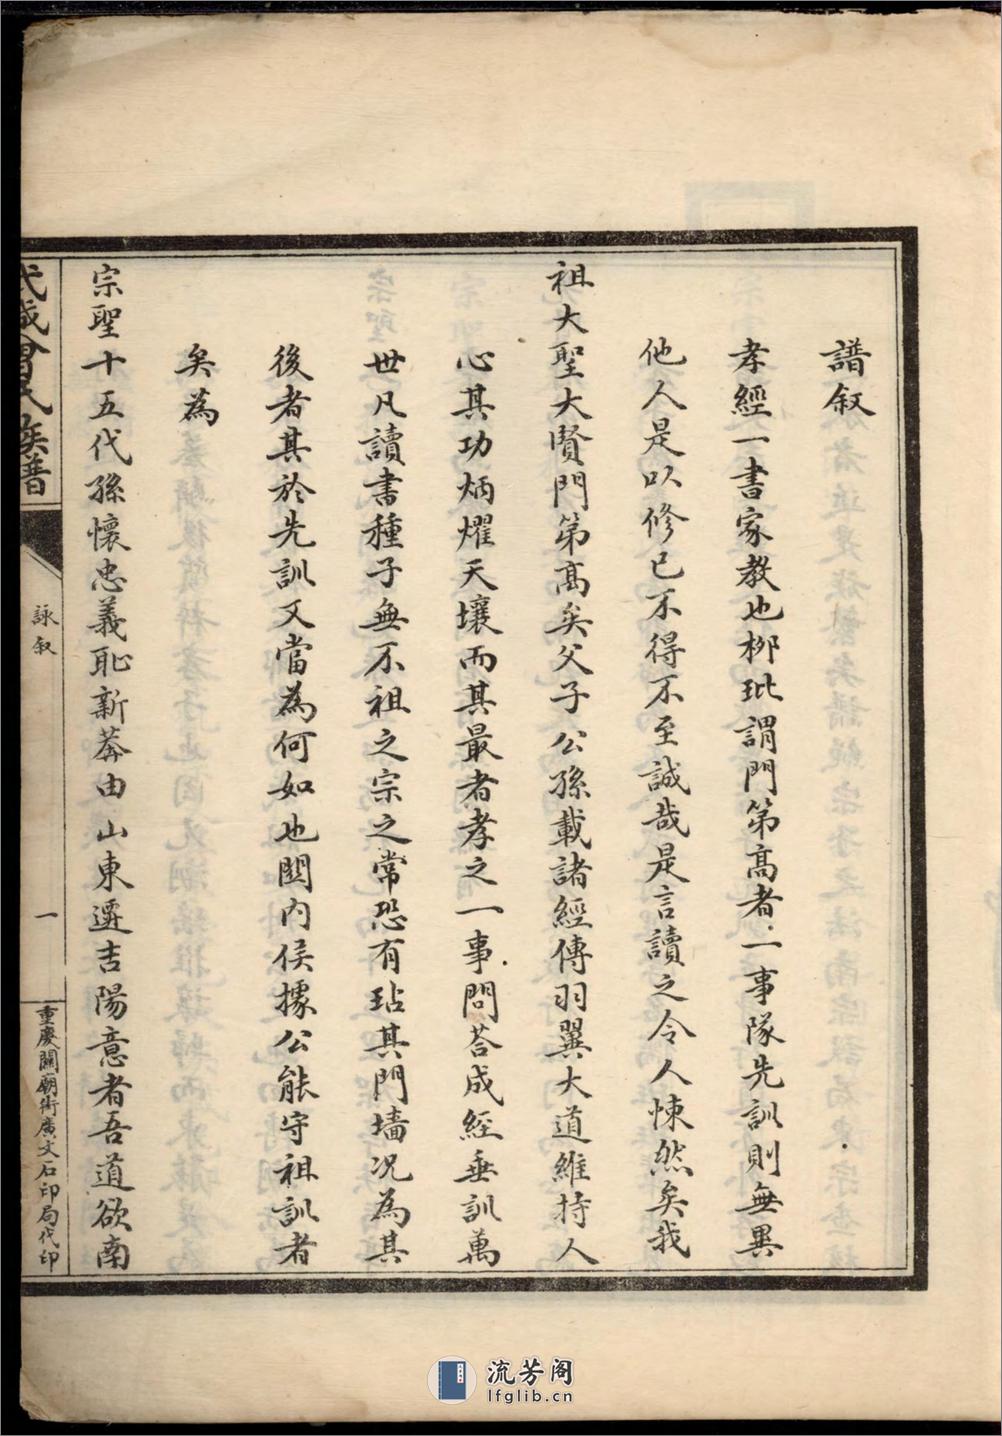 譜叙
孝經一書家教也柳玭謂門第高者一事隊先訓則無異
他人是以修已不得不至誠哉是言讀之令人悚然矣我
祖大聖大賢門第高矣父子公孫載諸經傳羽翼大道維持人
心其功炳燿天壤而其最者孝之一事問荅成經垂訓萬
世凡讀書種子無不祖之宗之常恐有玷其門墻况為其
後者其於先訓又當為何如也関内侯據公能守祖訓者
矣為
宗聖十五代孫懷忠義恥新莽由山東遷吉陽意者吾道欲南
武城曾氏族譜
詠叙
一
重慶關廟街廣文石印局代印
流芳阁
lfglib.cn